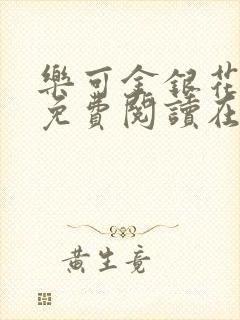 樂可金銀花
免費閱讀在
黃生竟